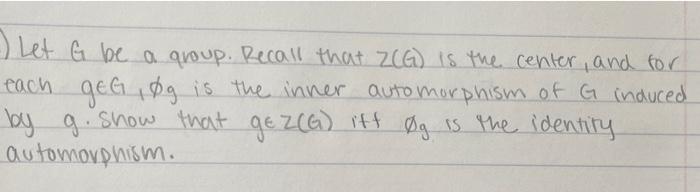 ) Let G be a group. Recall that Z(G) is the center, and for
each g∈G, ϕg is the inner automorphism of G induced
by g. Show that g∈Z(G) iff ϕg is the identity
automorphism.